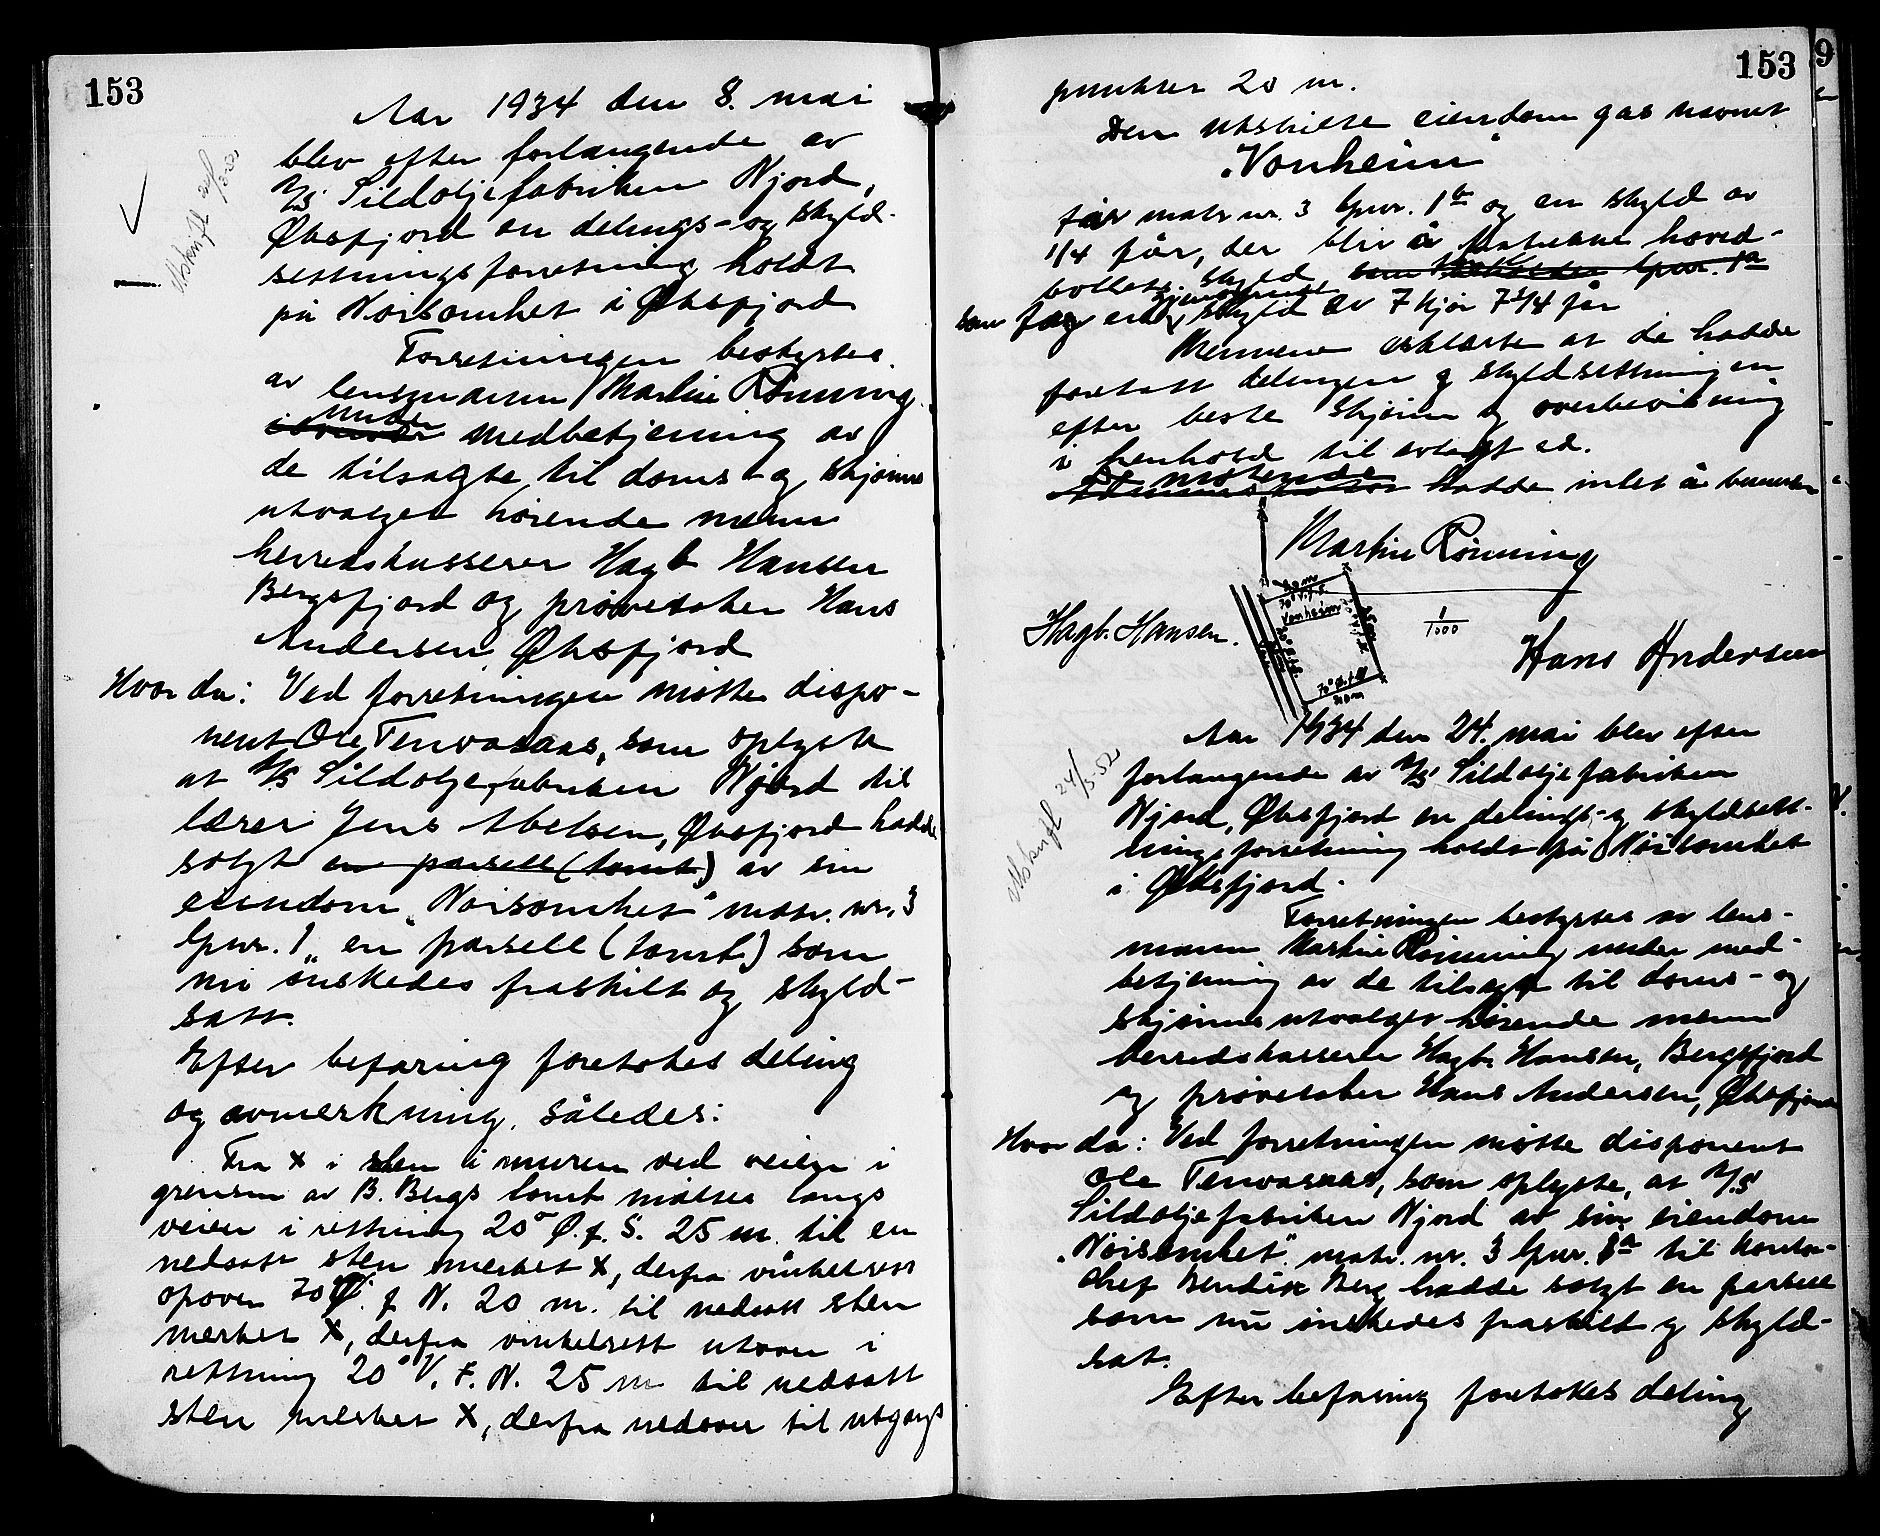 153
Aar 1934 den 8. mai
blev efter forlangende av
A/S Sildoljefabriken Njord,
Øksfjord en delings- og skyld-
settningsforretning holdt
på Nøisomhet i Øksfjord
Forretningen bestyrtes
av lensmannen Martin Rønning
under medbetjening av
de tilsagte til doms- og skjønns
utvalget hørende menn
herredskasserer Hagb Hansen
Bergsfjord og prøvetaker Hans
Andersen, Øksfjord
Hvorda: Ved forretningen møtte dispo-
nent Ole Tenvasaas, som oplyste
at A/S Sildoljefabriken Njord til
lærer Jens Abelsen, Øksfjord hadde
solgt en parsell (tomt) av sin
eiendom "Nøisomhet" matr. nr. 3
lpnr. 1 en parsell (tomt) som
nu ønskedes fraskilt og skyld-
satt.
Efter befaring foretokes deling
og avmerkning, således:
Fra X i sten i muren ved veien i
grensen av B. Bergs tomt måltes langs
veien i rettning 20° Ø.f. S. 25 m. til en
nedsatt sten merket X, derfra vinkelrett
opover 70° Ø. f N. 20 m. til nedsatt sten
merket X, derfra vinkelrett utover i
rettning 20° V. f. N. 25 m til nedsatt
sten merket X, derfra nedover til utgangs
Utskrift 24/3-52
153
9
punktet 20 m.
Den utskilte eiendom gas navnet
"Vonheim"
får matr nr. 3 lpnr. 1 og en skyld av
1/4 får, der blir å fratrekke hoved-
bollets skyld, lpnr. 1a
som får en gjenværende skyld av 7 kjør 7 1/4 får
Mennene erklærte at de hadde
foretatt delingen og skyldsettningen
efter beste skjønn og overbevisning
i henhold til avlagt ed.
De møtende hadde intet å bemerke
Martin Rønning
20 m
70° V.f.S.
Vonheim
70° Ø.f.N
20 m
1/1000
Hagb. Hansen.
Hans Andersen
Aar 1934 den 24. mai blev efter
forlangende av A/S Sildoljefabriken
Njord, Øksfjord en delings- og skyldsett-
ningsforretning holdt på Nøisomhet
i Øksfjord.
Utskrift 24/3-52
Forretningen bestyrtes av lens-
mann Martin Rønning under med-
betjening av de tilsagte til doms- og
skjønnsutvalget hørende menn
herredskasserer Hagb. Hansen, Bergsfjord
og prøvetaker Hans Andersen, Øksfjord
Hvorda: Ved forretningen møtte disponent
Ole Tenvasaas, som oplyste, at A/S
Sildoljefabriken Njord av sin eiendom
"Nøisomhet" matr. nr. 3 lpnr. 1a til kontor-
chef Bendix Berg hadde solgt en parsell
som nu ønskedes fraskilt og skyld-
sat.
Efter befaring foretokes deling